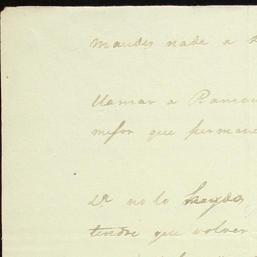 mandes nada a
llamar a Ramon
mejor que permane
Dr no lo hayas,
tendré que volver